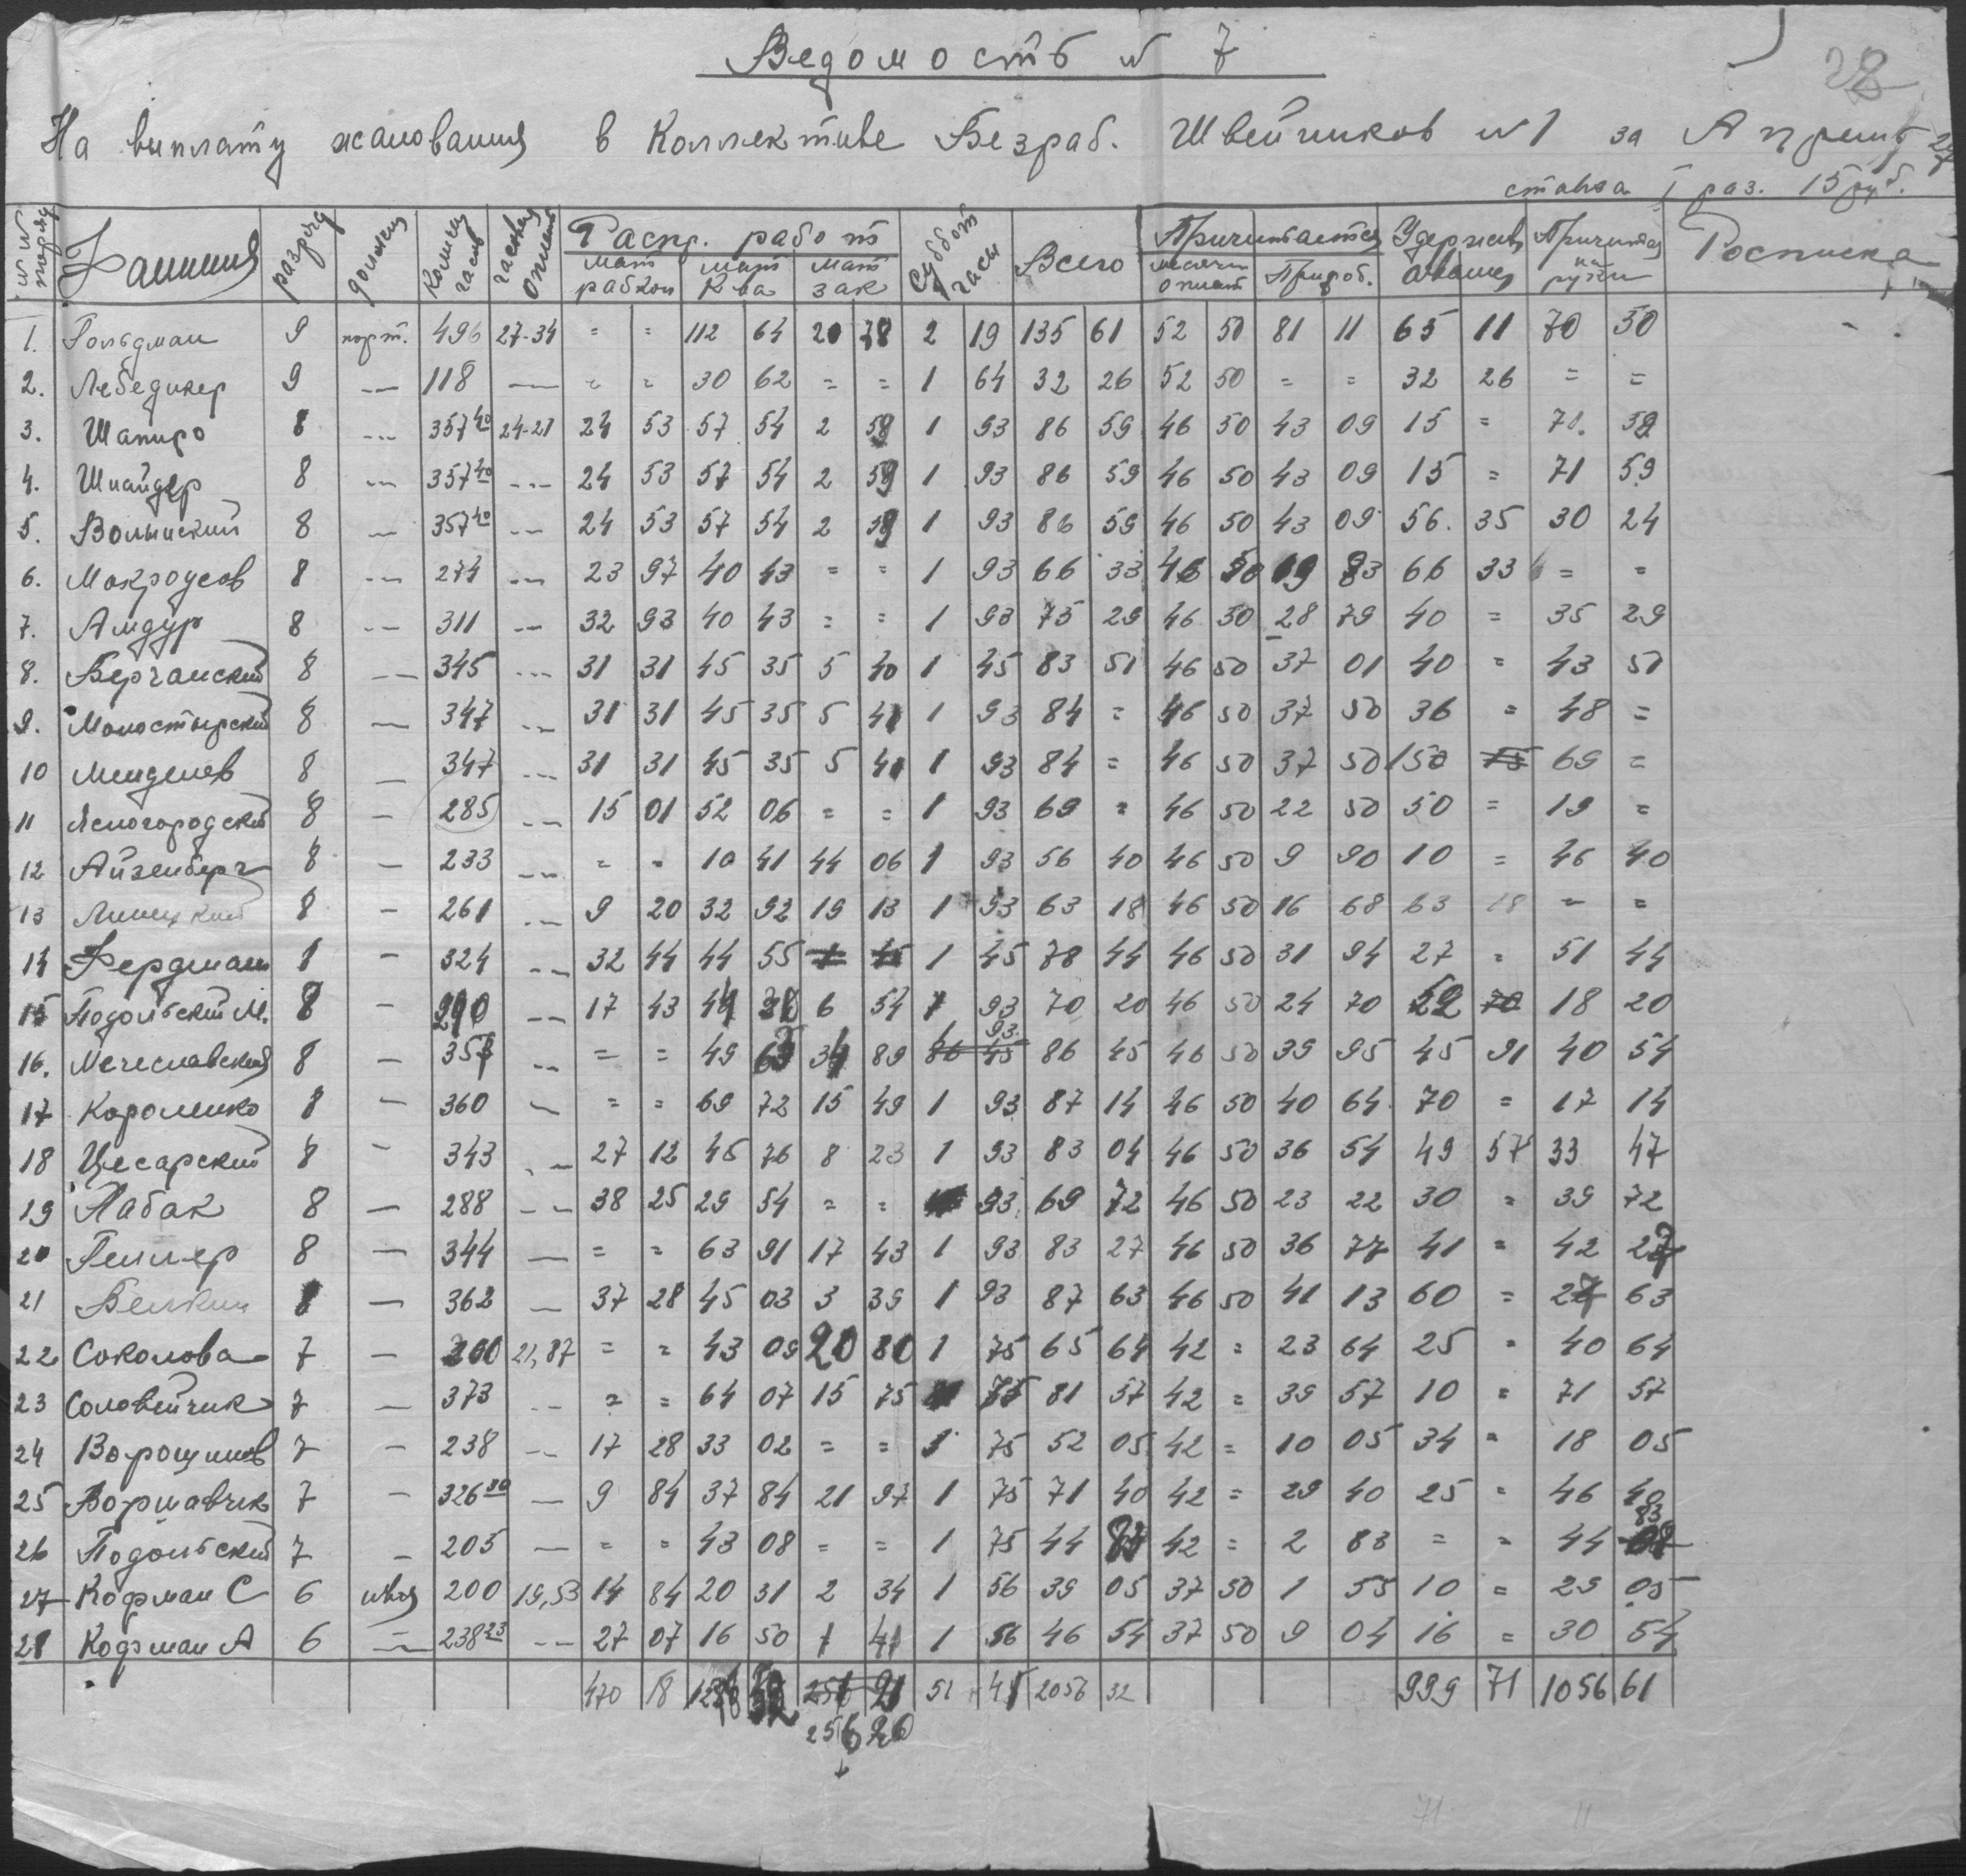 28
Ведомость № 7
На выплату жалования в Коллективе Безраб. Швейников №1 за Апрель 27
ставка I раз. 15 руб.
№№ поряд Фамилия разряд должн Колич часов часовая оплата Распр. работ Суббот часы Всего Причитается Удержив аванс Причитая на руки Росписка
март рабкоп март К-ва март зак месячн оплат Прираб.
1. Гольдман 9 порт. 496 27-34 = = 112 64 20 78 2 19 135 61 52 50 81 11 65 11 70 50
2. Лебедикер 9 — 118 — = = 30 62 = = 1 64 32 26 52 50 = = 32 26 = =
3. Шапиро 8 --- 357 40 24-21 24 53 57 54 2 59 1 93 86 59 46 50 43 09 15 = 71. 59
4. Шнайдер 8 --- 357 40 --- 24 53 57 54 2 59 1 93 86 59 46 50 43 09 15 = 71 59
5. Волынский 8 — 357 40 --- 24 53 57 54 2 59 1 93 86 59 46 50 43 09 56. 35 30 24
6. Мокроусов 8 --- 274 --- 23 97 40 43 = = 1 93 66 33 46 50 19 83 66 33 = =
7. Амдур 8 --- 311 --- 32 93 40 43 = = 1 93 75 29 46 50 28 79 40 = 35 29
8. Берчанский 8 --- 345 --- 31 31 45 35 5 40 1 45 83 51 46 50 37 01 40 = 43 51
9. Моностырский 8 — 347 --- 31 31 45 35 5 41 1 93 84 = 46 50 37 50 36 = 48 =
10 Менделев 8 — 347 --- 31 31 45 35 5 41 1 93 84 = 46 50 37 50 150 15 69 =
11 Ясногородский 8 — 285 --- 15 01 52 06 = = 1 93 69 = 46 50 22 50 50 = 19 =
12 Айзенберг 8 — 233 --- = = 10 41 44 06 1 93 56 40 46 50 9 90 10 = 46 40
13 Линецкий 8 — 261 --- 9 20 32 92 19 13 1 93 63 18 46 50 16 68 63 18 = =
14 Фердман 8 — 324 --- 32 44 44 55 1 45 78 44 46 50 31 94 27 = 51 44
15 Подольский М. 8 — 290 --- 17 43 44 30 6 54 1 93 70 20 46 50 24 70 52 70 18 20
16. Мечеславский 8 — 357 --- = = 49 63 34 89 86 45 93 86 45 46 50 39 95 45 91 40 54
17 Короленко 8 — 360 — = = 69 72 15 49 1 93 87 14 46 50 40 64 70 = 17 14
18 Цесарский 8 — 343 --- 27 12 45 76 8 23 1 93 83 04 46 50 36 54 49 57 33 47
19 Лабак 8 — 288 --- 38 25 29 54 = = 93 69 72 46 50 23 22 30 = 39 72
20 Геллер 8 — 344 — = = 63 91 17 43 1 93 83 27 46 50 36 77 41 = 42 27
21 Белкин 8 — 362 — 37 28 45 03 3 39 1 93 87 63 46 50 41 13 60 = 27 63
22 Соколова 7 — 300 21,87 = = 43 09 20 80 1 75 65 64 42 = 23 64 25 = 40 64
23 Соловейчик 7 — 373 --- = = 64 07 15 75 75 81 57 42 = 39 57 10 = 71 57
24 Ворощилов 7 — 238 --- 17 28 33 02 = = 1 75 52 05 42 = 10 05 34 = 18 05
25 Воршавчик 7 — 326 50 — 9 84 37 84 21 97 1 75 71 40 42 = 29 40 25 = 46 40
26 Подольский 7 — 205 — = = 43 08 = = 1 75 44 83 42 = 2 83 = = 44 83
27 Кофман С 6 швея 200 19,53 14 84 20 31 2 34 1 56 39 05 37 50 1 55 10 = 29 05
28 Кофман А 6 --- 238 23 --- 27 07 16 50 1 41 1 56 46 54 37 50 9 04 16 = 30 54
470 18 256 21 51 45 2056 32 999 71 1056 61
256 20